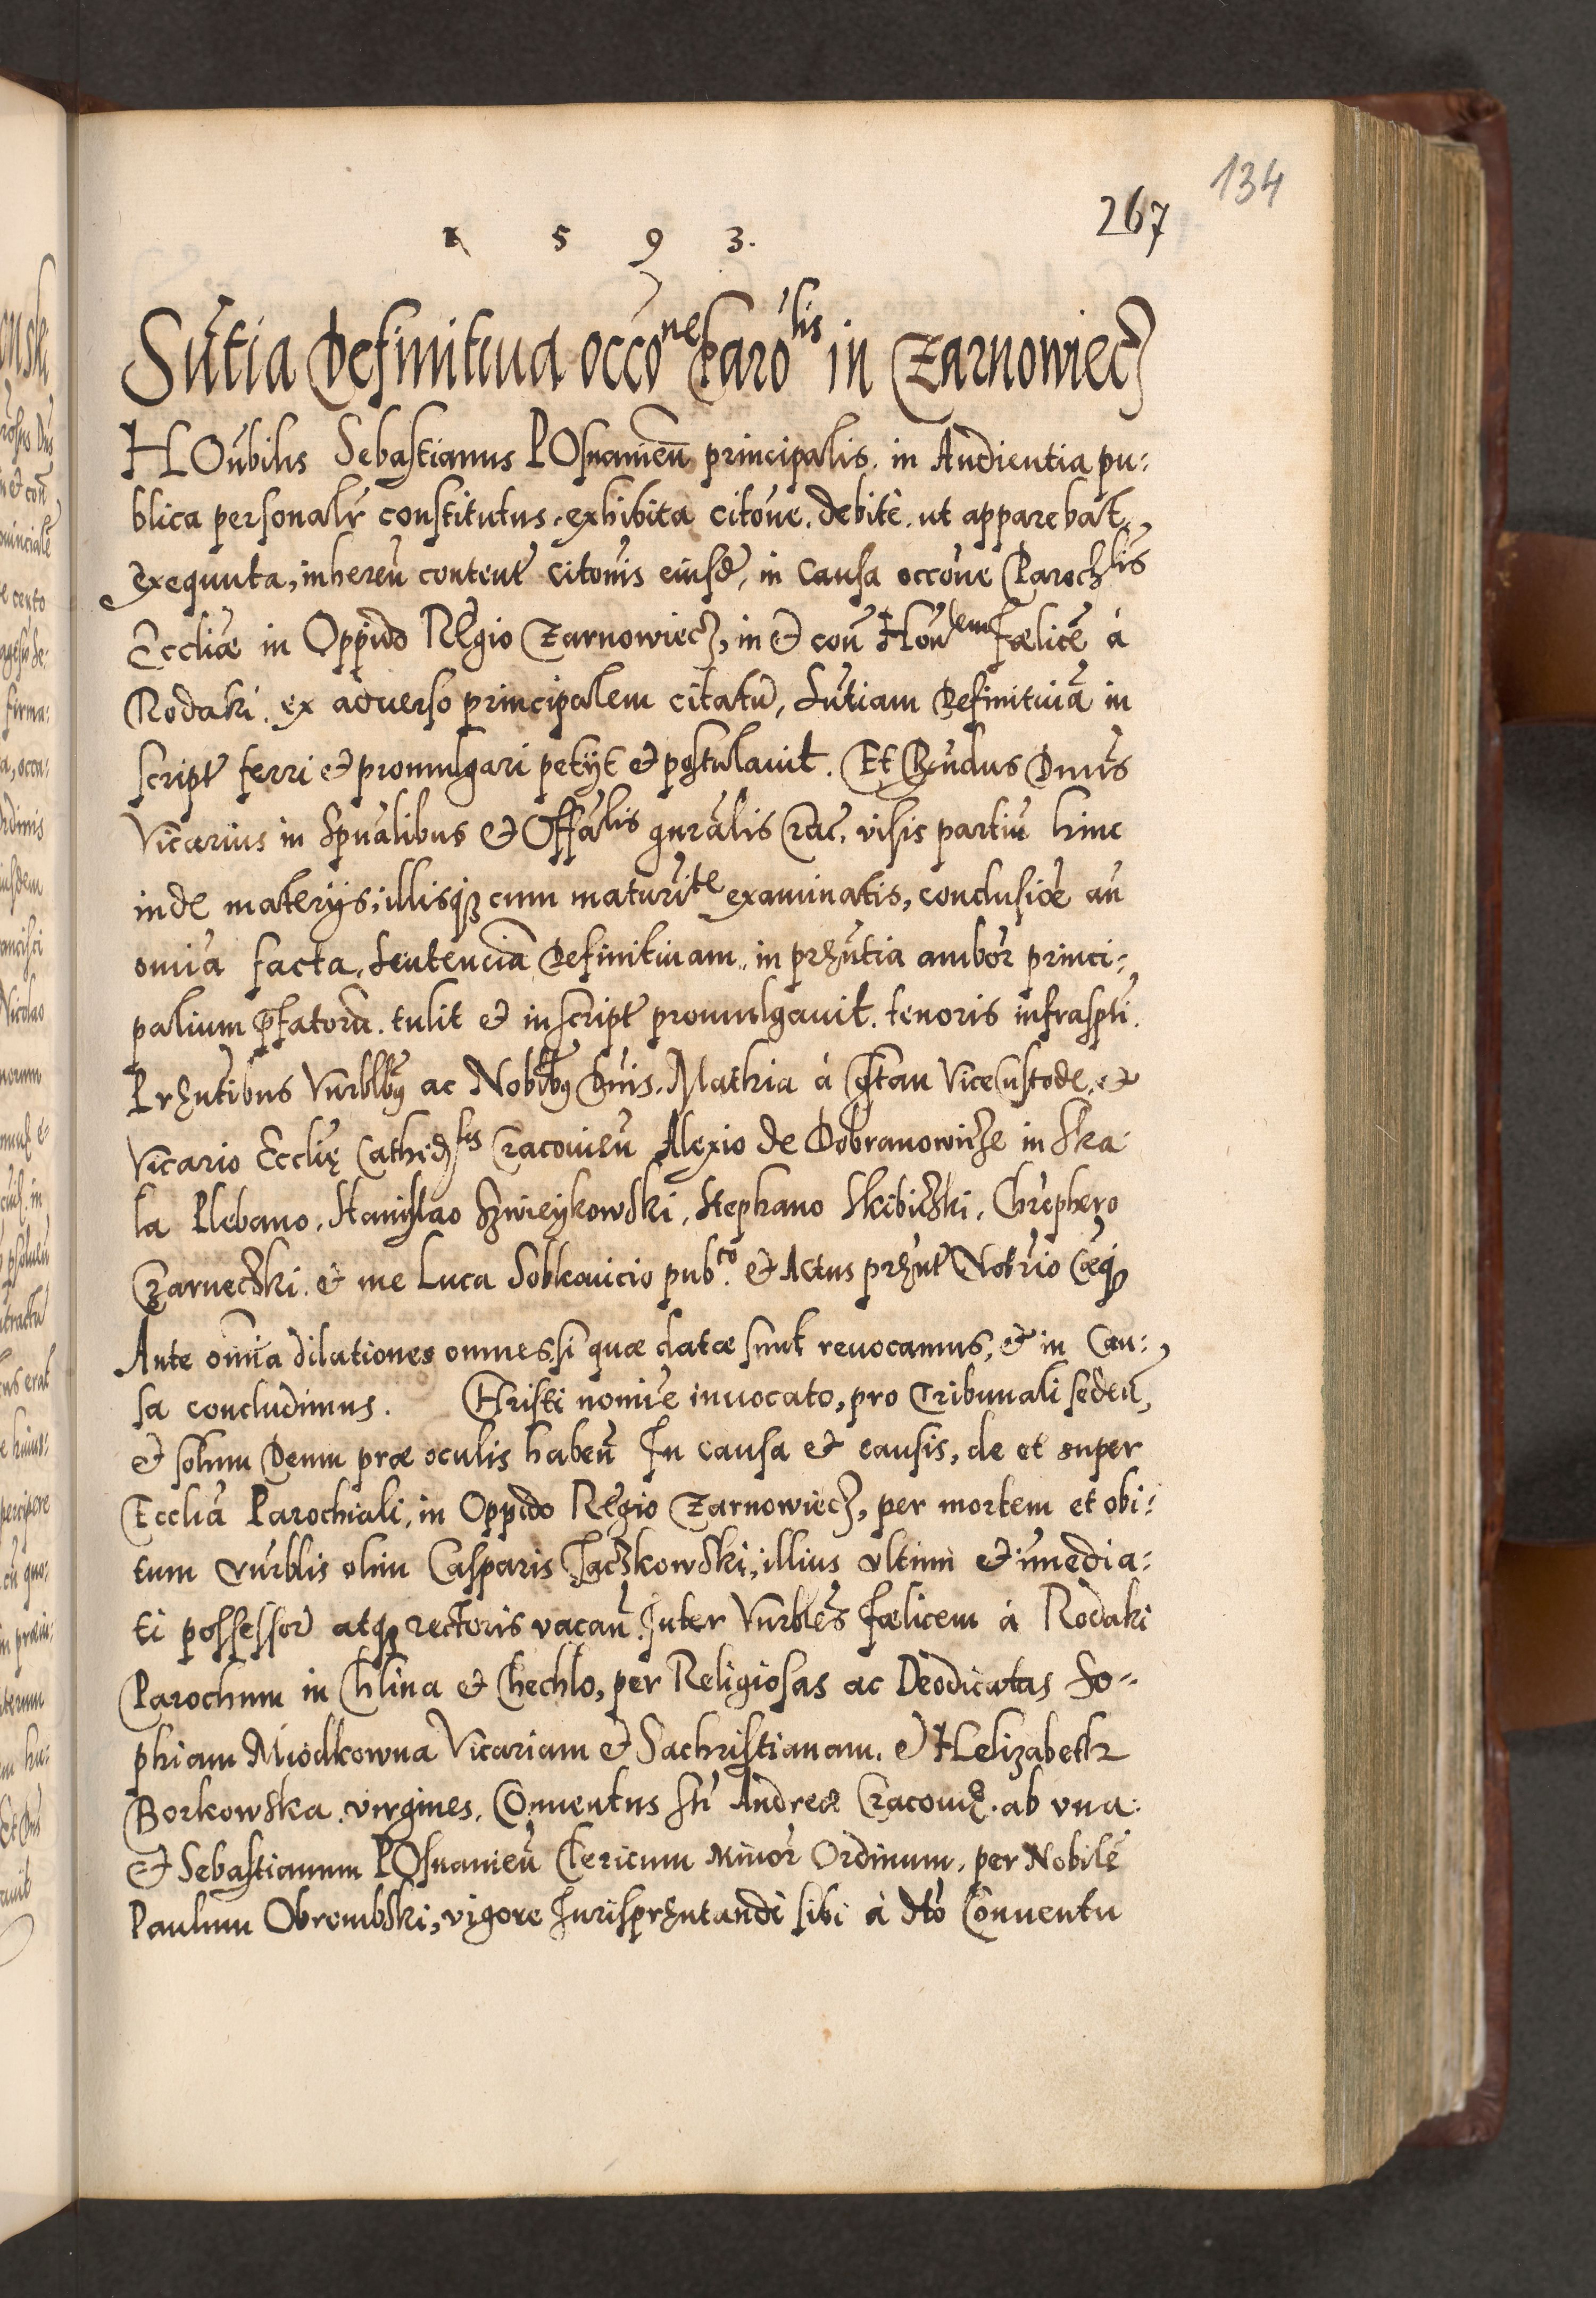 134
267
1 5 9 3.
Sñtia Definitiua occōne Parōlis in Czarnowiecz
HOñbilis Sebastianus POsnanień principalis. in Audientia pu:
blica personalr̃ constitutus. exhibita citõne. debitè. ut apparebat,
exequuta, inhereñ content̃ citõnis eiusd̃, in Causa occõne Parochlis
Eccliæ in Oppido Regio Czarnowiecz, in et coñ Hoñlem Fælicẽ à
Rodaki. ex aduerso principalem citatũ, Sñtiam Definitiuã in
script̃ ferri et promulgari petÿt et postulauit. Et Rñdus Dnũs
Vicarius in Spũalibus et Offãlis gñralis Crac. visis partiũ hinc
inde materÿs, illisqȝ cum maturite examinatis, conclusiõe añ
omĩa facta, Sentenciã Definitiuam, in prȝñtia ambor̃ princi:
palium p̃fatorũ. tulit et in script̃ promulgauit. tenoris infraspti.
Prȝñtibus Vñrblbȝ ac Nobĩlbȝ Dñis. Mathia à Cztan ViceCustode, et
Vicario Ecclię Cathedlis Cracouień Alexio de Dobranowicze in Ska:
la Plebano, Stanislao Szwieykowski, Stephano Skibiczki, Chr̃ephero
Czarneczki. et me Luca Sobkouicio pubco. et Actus prȝñt̃ Notr̃io Cæqȝ
Ante omĩa dilationes omnes, si quæ datæ sunt reuocamus, et in Cau:
sa concludimus. CHristi nomĩe inuocato, pro Tribunali sedeñ,
et solum Deum præ oculis habeñ In causa et causis, de et super
Eccliã Parochiali, in Oppido Regio Czarnowiecz, per mortem et obi:
tum vñrblis olim Casparis Jaczkowski, illius vltimi et ĩmedia:
ti possessor̃ atqȝ rectoris vacañ. Inter Vñrbles̃ Fælicem à Rodaki
Parochum in Chlina et Chechlo, per Religiosas ac Deodicatas So:
phiam Miodkowna Vicariam et Sachristianam. et HElizabeth
Borkowska. virgines. Conuentus Sti Andreæ Cracouię. ab vna:
et Sebastianum POsnanień Clericum Minor̃ Ordinum, per Nobilẽ
Paulum Obrembski, vigore Jurisprȝñtandi sibi à dtõ Conuentu